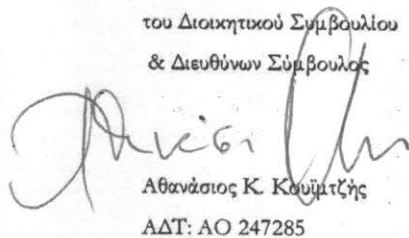 του Διοικητικού Συμβουλίου
& Διευθύνων Σύμβουλος
Αθανάσιος Κ. Κουϊμτζής
ΑΔΤ: ΑΟ 247285